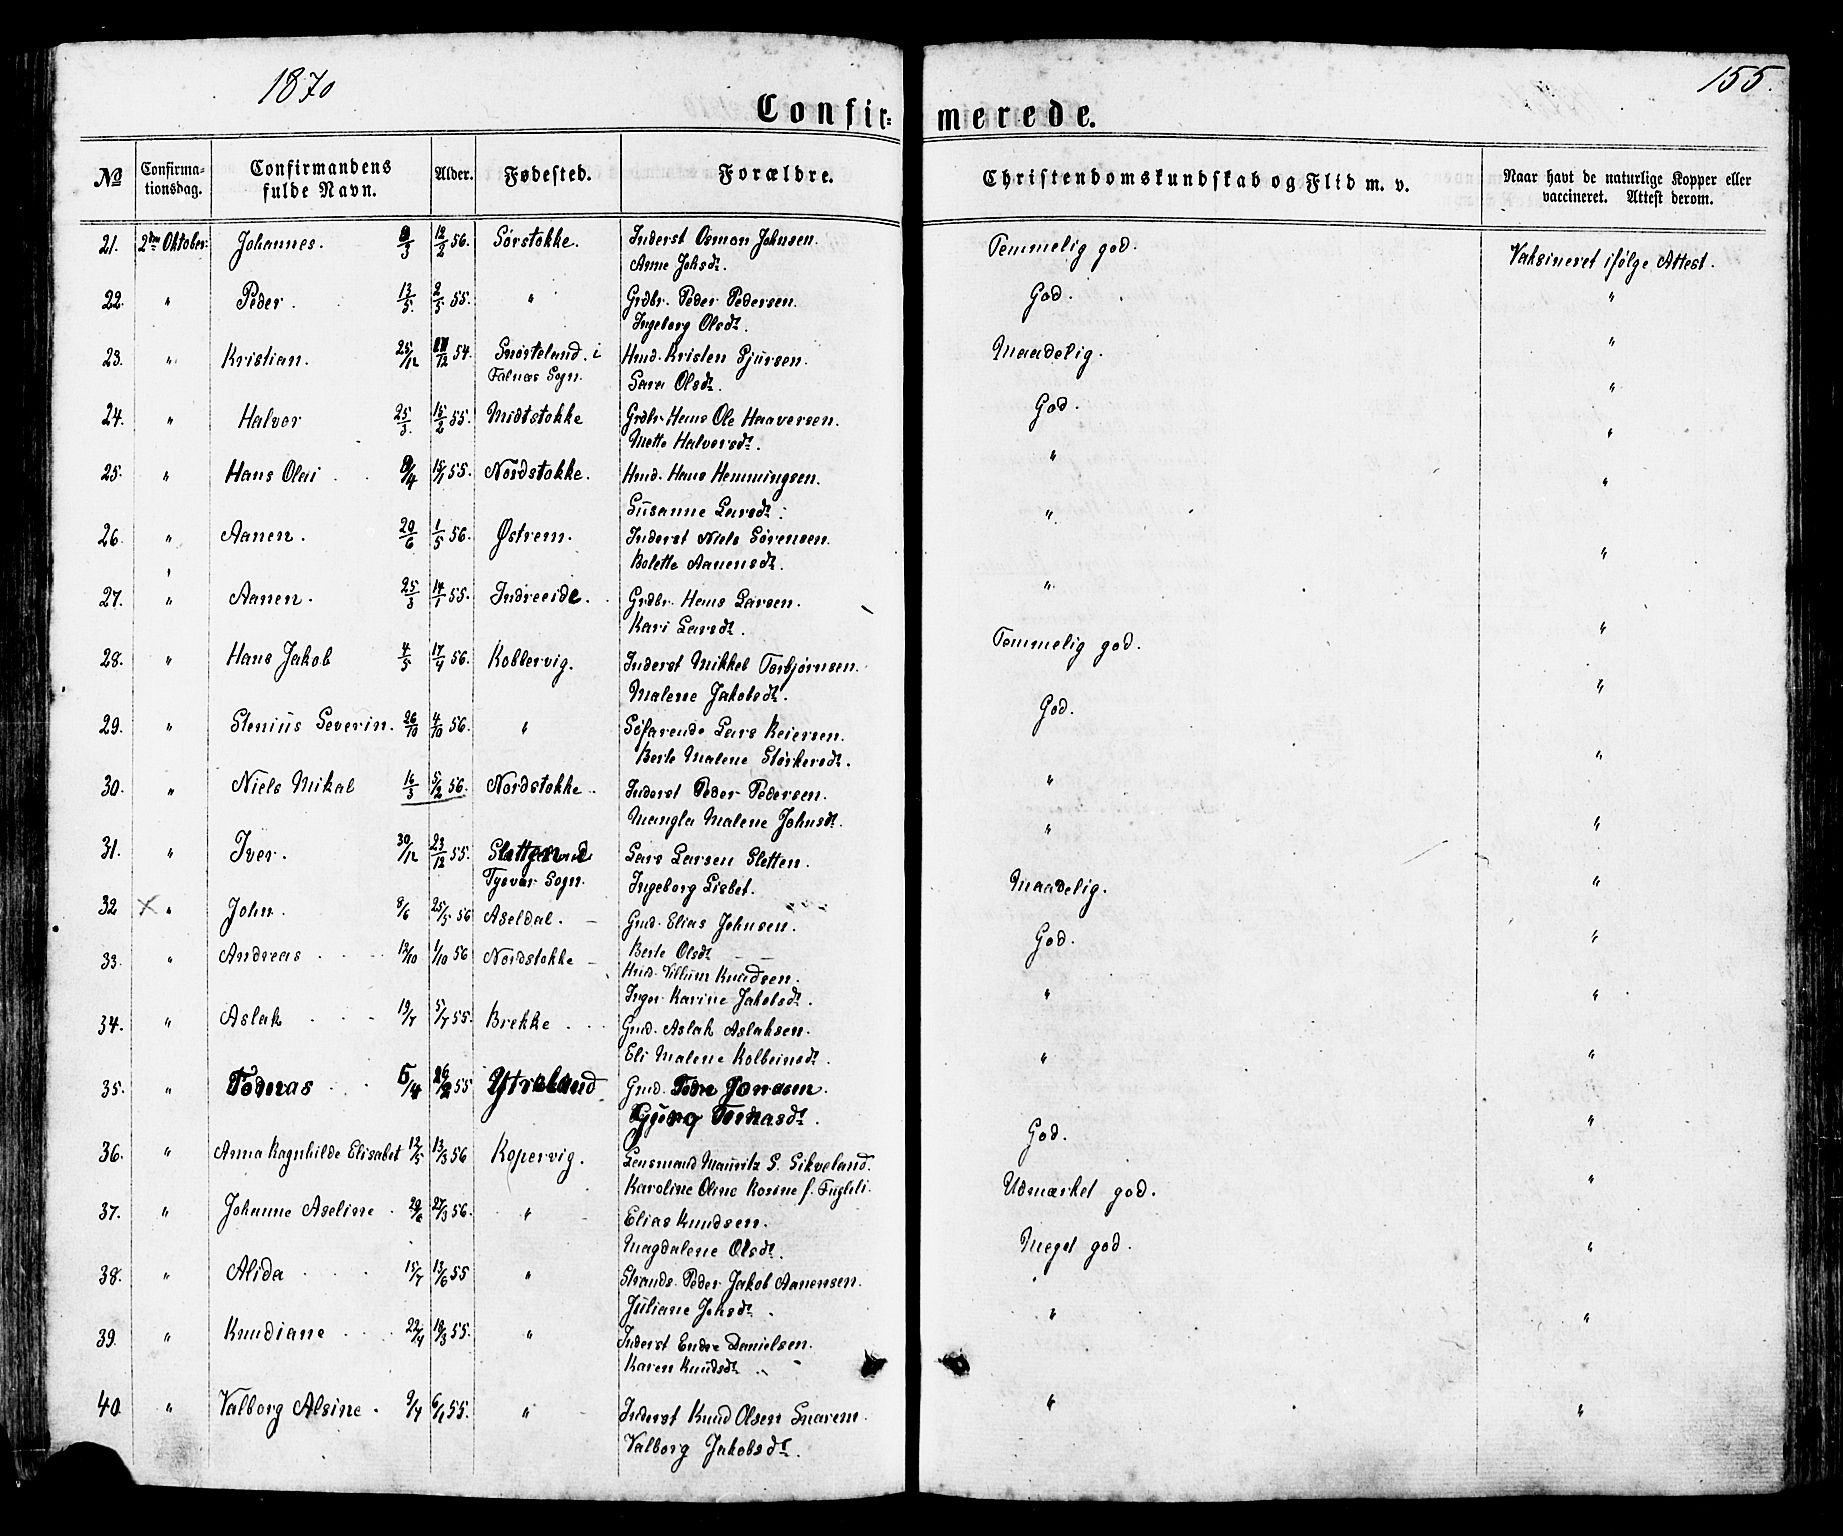 1870
155.
Confir= merede.
No
Confirma-
tionsdag.
Confirmandens
fulde Navn.
Alder.
Fødested.
Forældre.
Christendomskundskab og Flid m. v.
Naar havt de naturlige Kopper eller
vaccineret. Attest derom.
21. 2den Oktober. Johannes. 56. Sørstokke. Inderst Osmon Johnsen. Temmelig god. Vaksineret ifølge Attest.
Anne Johsdt.
22. " Peder. 13/5 2/5 55. " Grdbr. Peder Pedersen. God. "
Ingeborg Olsdt.
23. " Kristian. 25/12 54. i Hmd. Kristen Sjursen. Maadelig. "
Falnæs Sogn. Sara Olsdt.
24. " Halvor 25/3. 15/2 55. Midtstokke Grdbr. Hans Ole Haaversen. God. "
Mette Halversdt.
25. " Hans Olai 9/4 15/1 55. Nordstokke. Hmd. Hans Hemmingsen. " "
Susanne Larsdt.
26. " Aanen. 29/6 1/5 56. Østrem. Inderst Niels Sørensen. " "
Bolette Aanensdt.
27. " Aanen. 25/3 14/1 55. Indreeide. Grdbr. Hans Larsen. " "
Kari Larsdt.
28. " Hans Jakob 4/5 17/4 56. Kobbervig. Inderst Mikkel Torbjørnsen. Temmelig god. "
Malene Jakobsdt.
29. " Stenius Severin. 26/10 4/10 56. " Søfarende Lars Reiersen. God. "
Berte Malene Størkersdt.
30. " Niels Mikal 16/3 5/2 56. Nordstokke. Inderst Peder Pedersen. " "
Mangla Malene Johnsdt.
31. " Iver. 30/12 23/12 55. Lars Larsen Sletten. " "
Tysvær Sogn. Ingeborg Lisbet.
32 X " John. 8/6 25/5 56 Aseldal. Gmd. Elias Johnsen. Maadelig. "
Berte Olsdt
33. " Andreas 12/10 1/10 56 Nordstokke Hmd. Villum Knudsen. God. "
Inger Karine Jakobsdt.
34. " Aslak 19/7 5/7 55. Brekke Gmd. Aslak Aslaksen. " "
Eli Malene Kolbeinsdt.
35. " Tednas 5/4 26/2 55 Ytreland Gmd. " "
36. " Anna Ragnhilde Elisabet 12/5 13/3 56 Kopervig. Lensmand Mauritz S. Sikveland. God. "
Karoline Oline Rosine f. Fugleli.
37. " Johanne Aseline 29/6 27/3 56. " Elias Knudsen. Udmærket god. "
Magdalene Olsdt.
38. " Alida 15/7 13/6 55 " Strands. Peder Jakob Aanensen. Meget god. "
Juliane Johsdt.
39. " Knudiane 22/4 19/3 55. " Inderst Endre Danielsen. " "
Karen Knudsdt
40 " Valborg Alsine. 9/4 6/1 55. " Inderst Knud Olsen Snarem. " "
Valborg Jakobsdt.